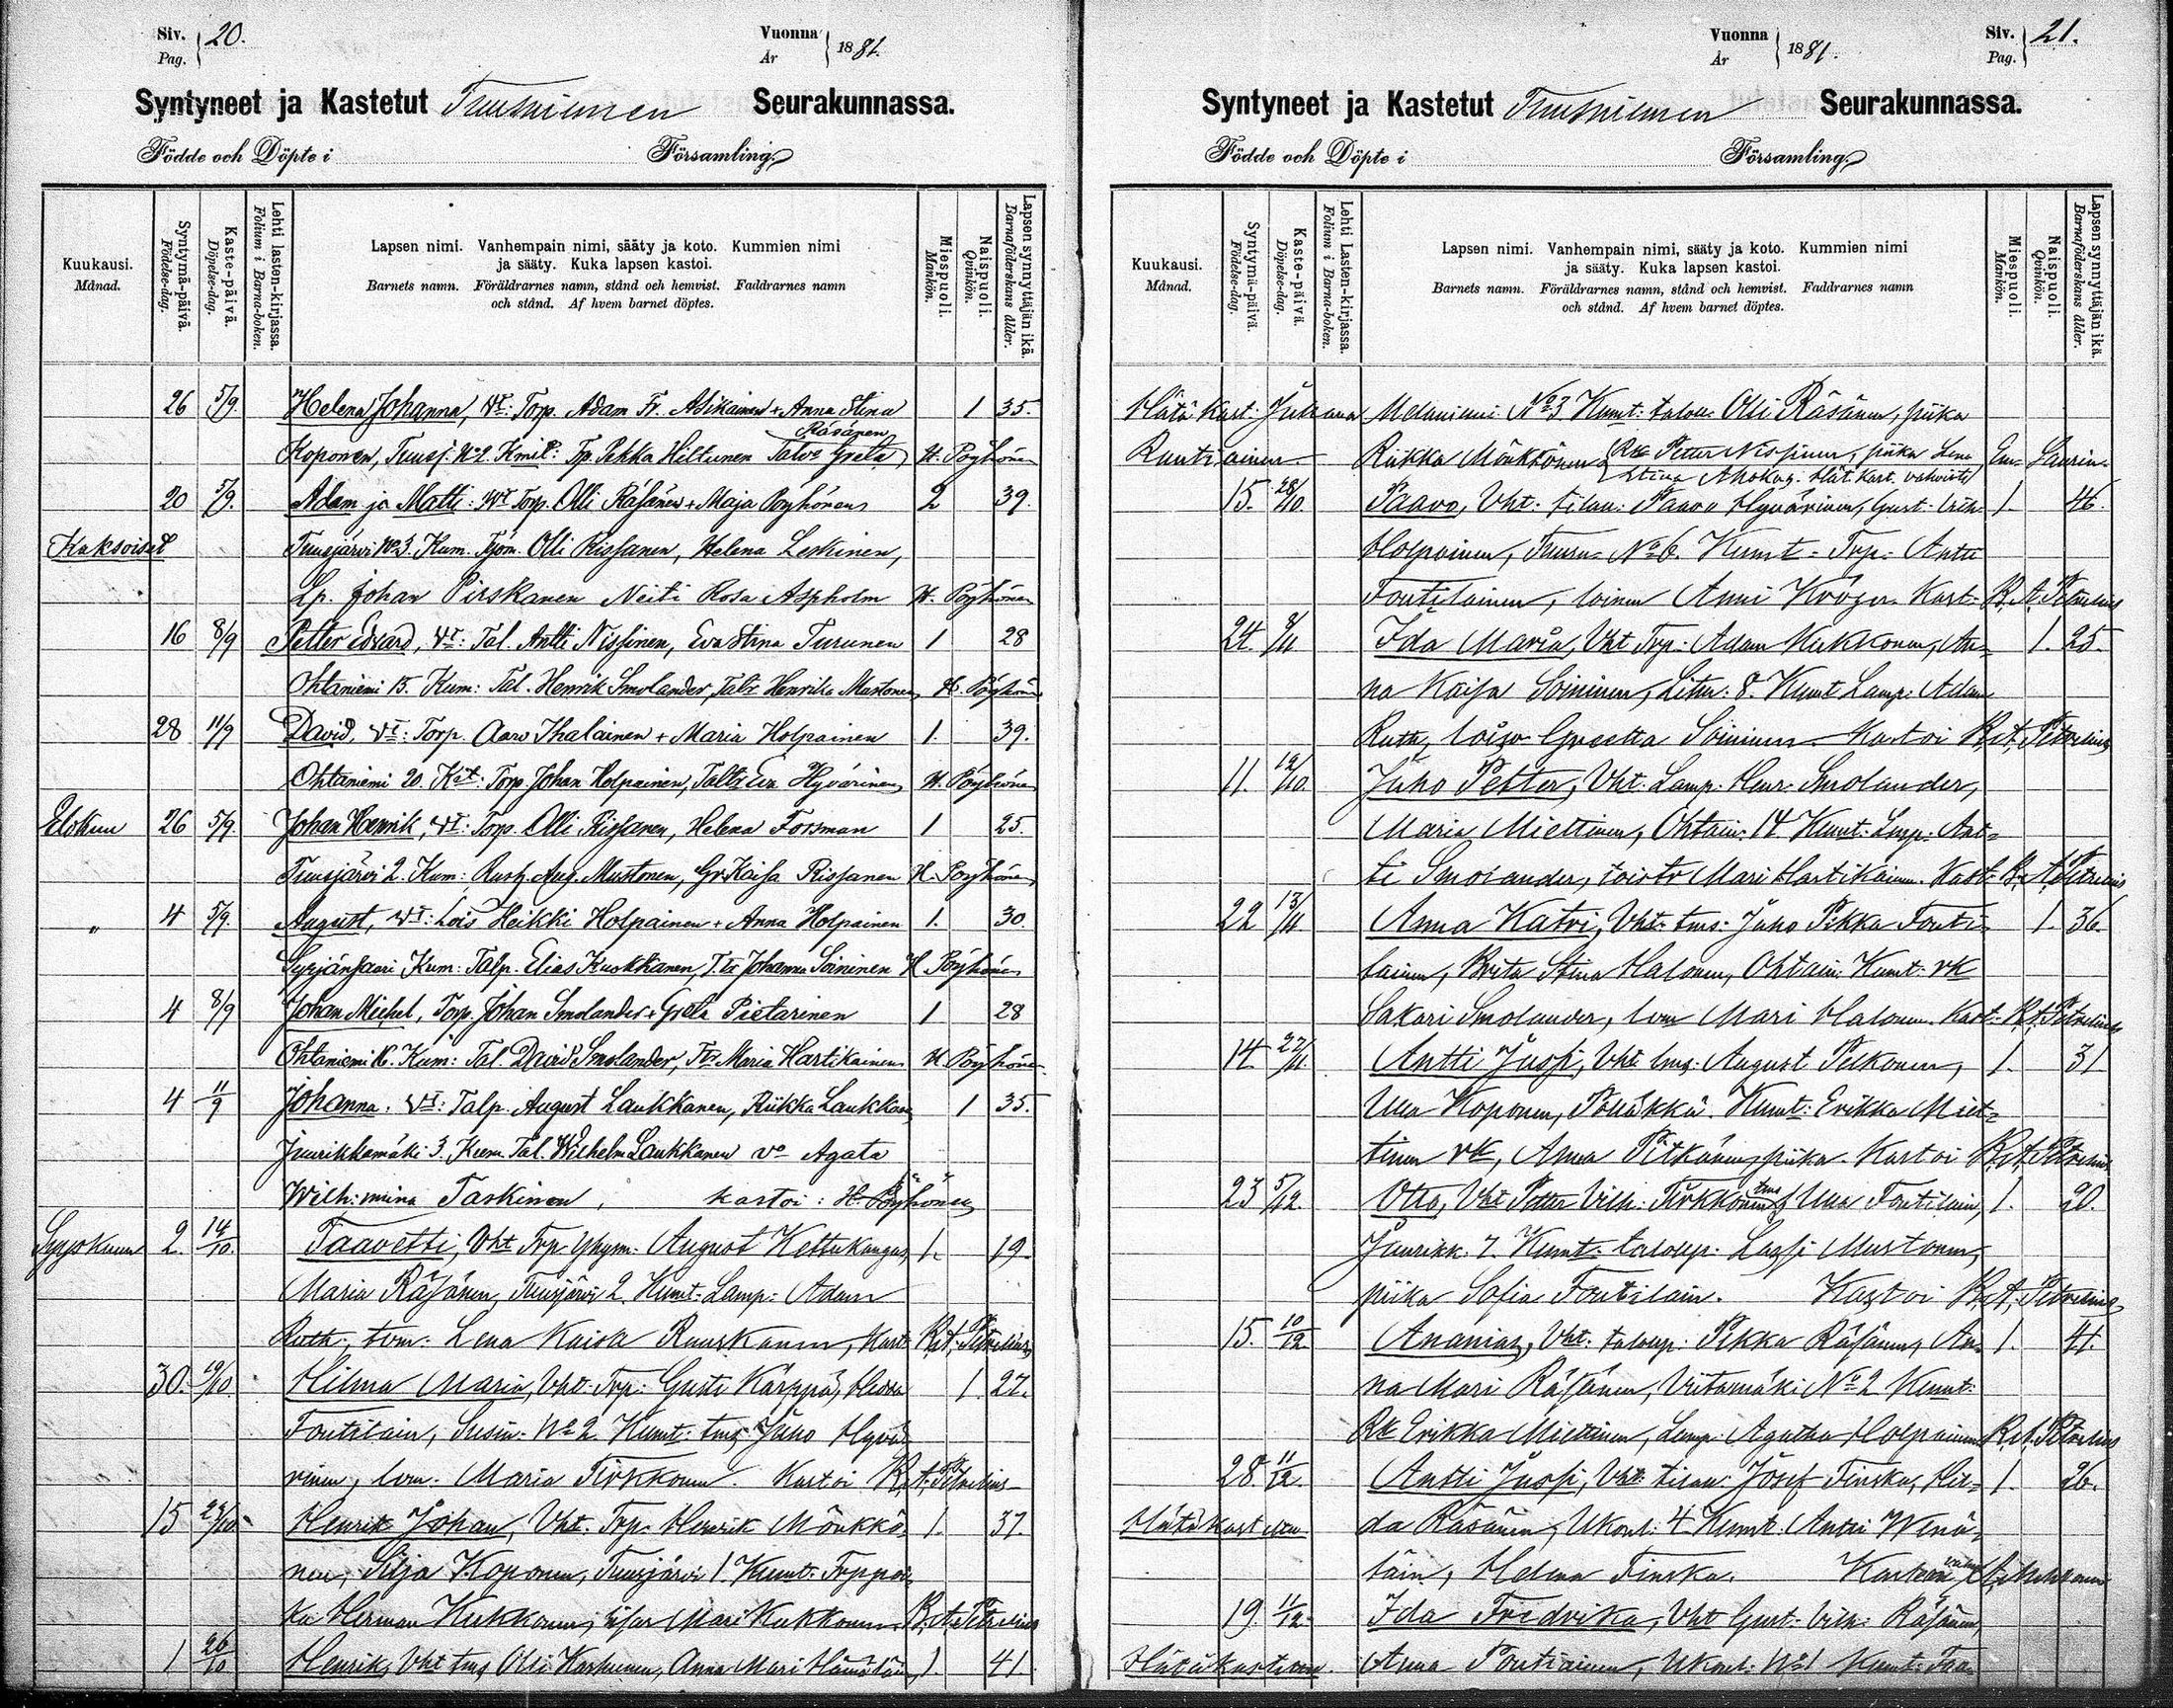 Siv. 20.
Pag.
Vuonna 1881.
År
Syntyneet ja Kastetut Tuusniemen Seurakunnassa.
Födde och Döpte i Församling.
Kuukausi.
Månad.
Syntymä-päivä.
Födelse-dag.
Kaste-päivä.
Döpelse-dag.
Lehti lasten-kirjassa.
Folium i Barna-boken.
Lapsen nimi. Vanhempain nimi, sääty ja koto. Kummien nimi
ja sääty. Kuka lapsen kastoi.
Barnets namn. Föräldrarnes namn, stånd och hemvist. Faddrarnes namn
och stånd. Af hvem barnet döptes.
Miespuoli.
Mankön.
Naispuoli.
Qvinkön.
Lapsen synnyttäjän ikä.
Barnaföderskans ålder.
26 5/9. Helena Johanna, Vt: Torp. Adam Fr. Asikainen + Anna Stina 1 35.
Räsänen
Koponen, Tuusj. No 2. Pekka Hiltunen Greta H. Pöyhönen
20 5/9. Adam ja Matti: Vt Torp. Olli Räsänen + Maja Pöyhönen 2 39.
Kaksoiset Tuusjärvi No 3. Kum. Olli Rissanen, Helena Leskinen,
Lp. Johan Pirskanen Neiti Rosa Aspholm H. Pöyhönen
16 8/9 Petter Edvard, Vt: Tal. Antti Nissinen, Eva Stina Turunen 1 28
Ohtaniemi 15. Kum: Tal. Henrik Smolander, Henrika Mustonen, H. Pöyhönen
28 11/9 David, Vt: Torp. Aaro Ihalainen + Maria Holpainen 1. 39.
Ohtaniemi 20. Torp. Johan Holpainen, Eva Hyvärinen, H. Pöyhönen
Elokuu 26 5/9. Johan Henrik, Vt: Torp. Olli Rissanen, Helena Forsman 1 25.
Tuusjärvi 2. Kum: Aug. Mustonen, Kaisa Rissanen H. Pöyhönen
" 4 5/9. August, Vt: Lois Heikki Holpainen + Anna Holpainen 1. 30.
Syrjänsaari Kum: Talp. Elias Kuokkanen, Johanna Soininen H. Pöyhönen
4 8/9 Johan Michel, Torp. Johan Smolander + Greta Pietarinen 1 28
Ohtaniemi Kum: Tal. David Smolander, Maria Hartikainen H. Pöyhönen
4 11/9 Johanna. Vt: Talp. August Laukkanen, Riikka Laukkanen 1 35.
Juurikkamäki 3. Kum. Tal. Wilhelm Laukkanen vo Agata
Wilhelmina Taskinen, kastoi: H. Pöyhönen
Syyskuun 2. 14/10. Taavetti, Vht Trp. August Kettukangas, 1. 19.
Maria Räsänen, Tuusjärvi 2. Kumt: Lamp: Adam
Ruth, Lena Kaisa Ruuskanen, Kast: R. A. Petrelius
30. 19/10. Hilma Maria, Vht: Trp: Gusti Kärppä, 1. 27.
Toutilain, No 2. Kumt: tms Juho Hyvä-
rinen, Maria Tirkkonen. Kastoi R. A. Petrelius
15 23/10. Henrik Johan, Vht. Trp. Henrik Mönkkö- 1. 37.
nen, Silja Koponen, Tuusjärvi 1. Kumt:
Herman Kukkonen, Mari Kukkonen R. A. Petrelius
1 26/10 Henrik, Vht tms Olli Karhunen, Anna Mari Hämäläin, 1 41
Vuonna 1881.
År
Siv. 21.
Pag.
Syntyneet ja Kastetut Tuusniemen Seurakunnassa.
Födde och Döpte i Församling.
Kuukausi.
Månad.
Syntymä-päivä.
Födelse-dag.
Kaste-päivä.
Döpelse-dag.
Lehti Lasten-kirjassa.
Folium i Barna-boken.
Lapsen nimi. Vanhempain nimi, sääty ja koto. Kummien nimi
ja sääty. Kuka lapsen kastoi.
Barnets namn. Föräldrarnes namn, stånd och hemvist. Faddrarnes namn
och stånd. Af hvem barnet döptes.
Miespuoli.
Mankön.
Naispuoli.
Qvinkön.
Lapsen synnyttäjän ikä.
Barnaföderskans ålder.
Hätä kast. Juliana Melaniemi No 3 Kumt: Olli Räsänen, piika
Rautiainen. Riikka Mönkkönen Petter Nissinen, piika Lena
Stina Ahokas. Hät. kast. vahvisti
15. 28/10. Paavo, Vht: tilan: Paavo Hyvärinen, 1. 46.
Holpainen, No 6. Kumt: Trp: Antti
Toutilainen, loinen Anni Kröger. Kast. R. A. Petrelius
24. 8/11. Ida Maria, Vht Trp: Adam Kukkonen, An- 1. 25.
na Kaisa Soininen, 8. Kumt Lamp: Adam
Ruth, Greetta Soininen. Kastoi R. A. Petrelius
11. 12/10. Juho Petter, Vht. Lamp. Henr. Smolander,
Maria Miettinen, Ohtain: 14. Kumt: Lmp. Ant-
ti Smolander, Mari Hartikainen. Kast: R. A. Petrelius
22 13/11. Anna Katri, Vht: tms: Juho Pekka Touti- 1. 36.
lainen, Brita Stina Halonen, Ohtain: Kumt: rk
Sakari Smolander, Mari Halonen. Kast: R. A. Petrelius
14. 27/11. Antti Jussi, Vht tms: August Pelkonen, 1. 31
Ulla Koponen, Pölläkkä. Kumt: Erikka Miet-
tinen rk, Anna Pitkänen, piika. Kastoi R. A. Petrelius
23 5/12. Otto, Vht Petter Vilh. Tirkkonen tms Ulla Toutilain, 1. 20.
Juurikk. 7. Kumt: taloup: Lassi Mustonen,
piika Sofia Toutilain. Kastoi R. A. Petrelius
15. 10/12. Ananias, Vht: taloup: Pekka Räsänen, An- 1. 41.
na Mari Räsänen, Viitamäki No 2 Kumt:
Rk Erikka Miettinen, Lamp. Agatha Holpainen R. A. Petrelius
28. 11/12. Antti Jussi, Vht: tilan: Josef Finska, Hel- 1. 26.
Hätä kast. da Räsänen, Ukonl: 4. Kumt. Antti Wenä-
läin, Helena Finska.
19. 11/12. Ida Fredrika, Vht Gust: Vilh: Räsänen,
Anna Poutiainen, Ukonl: No 1 Kumt: